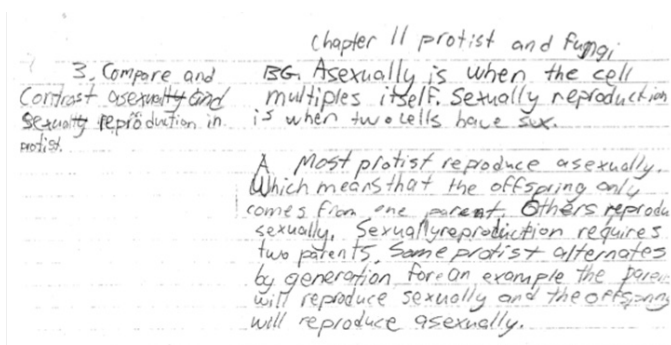 Chapter 11 protist and fungi
3. Compare and
Contrast asexually and
Sexually reproduction in
protist.
BG. Asexually is when the cell
multiples itself. Sexually reproduction
is when two cells have sex.
A Most protist reproduce asexually.
Which means that the offspring only
comes from one parent. Others reprodu
sexually. Sexually reproduction requires
two patents. Some protist alternates
by generation fore an example the paren
will reproduce sexually and the offspring
will reproduce asexually.